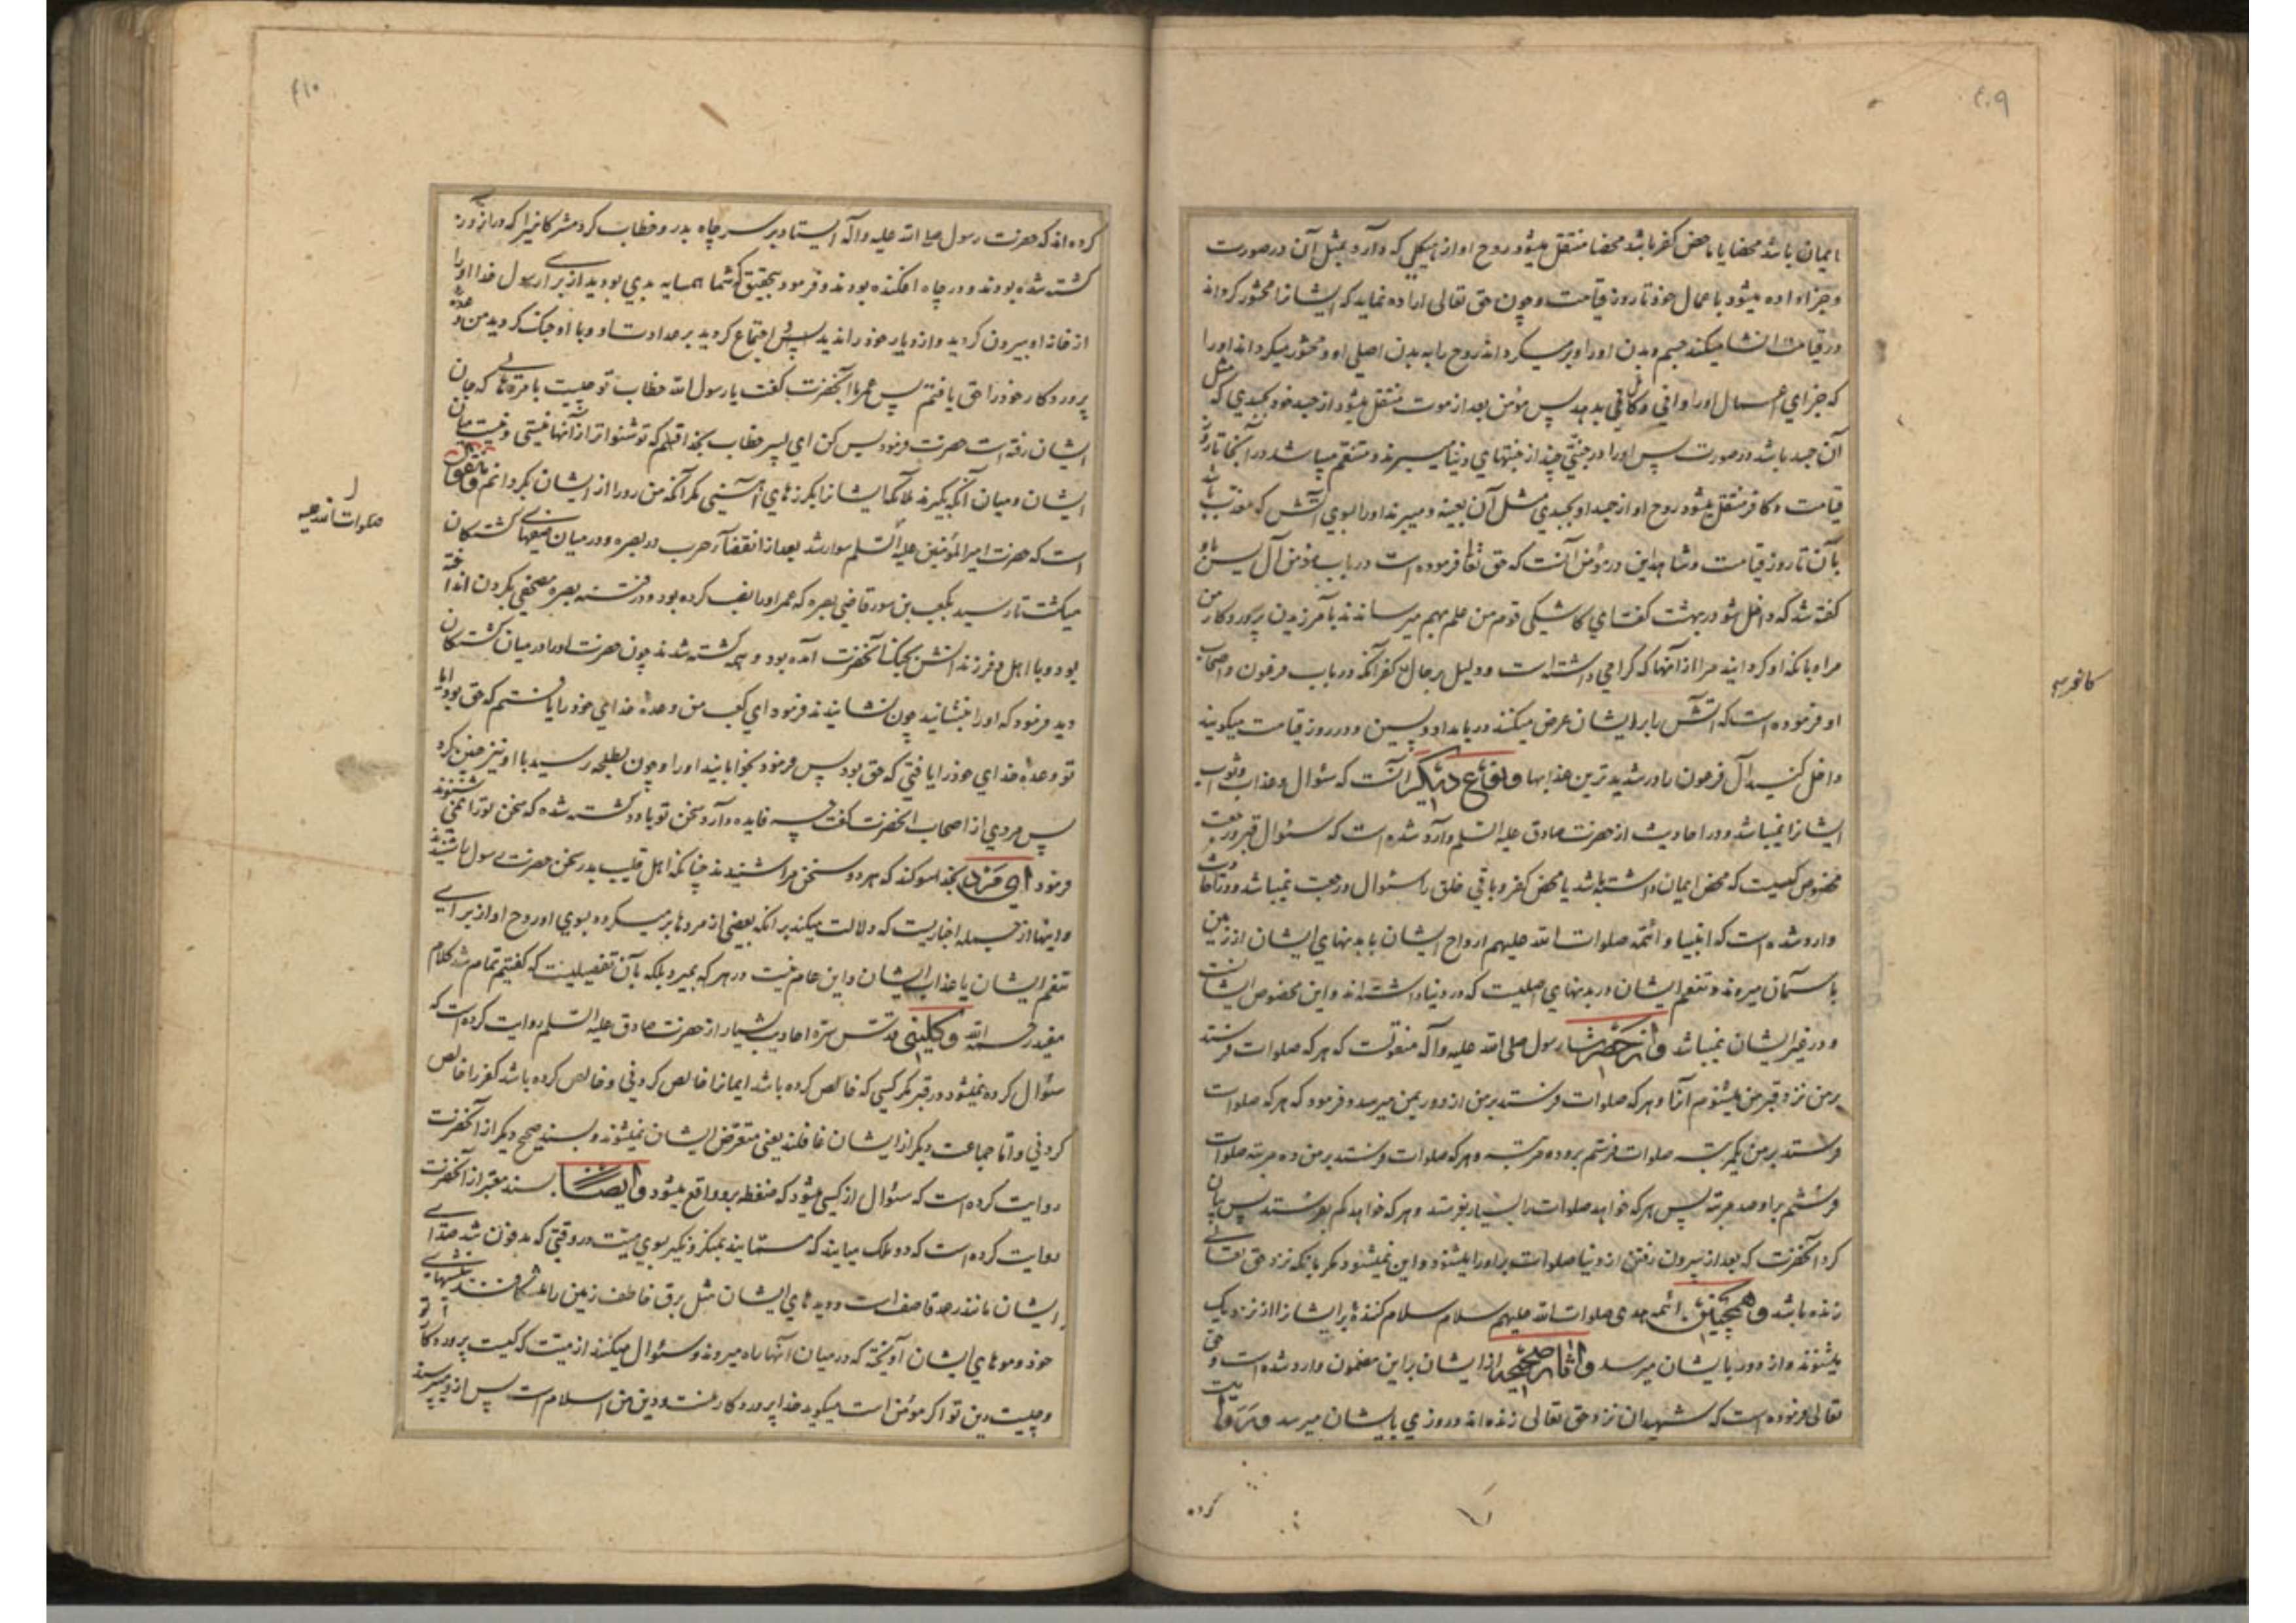 ۴۰۹
ایمان باشد محضا یا ماحض کفر باشد محضا منتقل میشود روح او از هیکلی که دارد بمثل آن در صورت
و جزا داده میشود باعمال خود تا روز قیامت و چون حق تعالی اراده نماید که ایشانرا محشور گرداند
در قیامت انشا میکند جسم و بدن او را و برمیگرداند روح را به بدن اصلی او و محشور میگرداند او را
که جزای اعمال او را وافی و کافی بدهد پس مؤمن بعد از موت منتقل میشود از جسد خود بجسدی که مثل
آن جسد باشد در صورت پس او را در جنتی چند از جنتهای دنیا میبرند و متنعم میباشد در آنجا تا روز
قیامت و کافر منتقل میشود روح او از جسد او بجسدی مثل آن بعینه و میبرند او را بسوی آتش که معذب باشد
بآن تا روز قیامت و شاهد این در مؤمن آنست که حق تعالی فرموده است در باب مؤمن آل یسن باو
گفته شد که داخل شو در بهشت گفت ای کاشکی قوم من علم بهم میرساندند بآمرزیدن پروردگار من
مرا و بآنکه او گردانید مرا از آنها که گرامی داشته است و دلیل بر حال کفر آنکه در باب فرعون و اصحاب
او فرموده است که آتش را بر ایشان عرض میکنند در بامداد و پسین و در روز قیامت میگویند
داخل کنید آل فرعون را در شدیدترین عذابها و نوع دیگر آنست که سئوال و عذاب و ثواب
ایشانرا نمیباشد و در احادیث از حضرت صادق علیه السلم وارد شده است که سئوال قبر و رجعت
مخصوص کسیست که محض ایمان داشته باشد یا محض کفر و باقی خلق را سئوال و رجعت نمیباشد و در احادیث
وارد شده است که انبیا و ائمه صلوات الله علیهم ارواح ایشان با بدنهای ایشان از زمین
باسمان میروند و تنعم ایشان در بدنهای اصلیست که در دنیا داشته‌اند و این مخصوص ایشانست
و در غیر ایشان نمیباشد و از حضرت رسول صلی الله علیه وآله منقولست که هر که صلوات فرستد
بر من نزد قبر من میشنوم آنرا و هر که صلوات فرستد بر من از دور بمن میرسد و فرمود که هر که صلوات
فرستد بر من یکمرتبه صلوات فرستم بر او ده مرتبه و هر که صلوات فرستد بر من ده مرتبه صلوات
فرستم بر او صد مرتبه پس هر که خواهد صلوات را بسیار بفرستد و هر که خواهد کم بفرستد پس بیان
کرد آنحضرت که بعد از بیرون رفتن از دنیا صلوات بر او را میشنود و این نمیشود مگر بآنکه نزد حق تعالی
زنده باشد و همچنین ائمه هدی صلوات الله علیهم سلام سلام کنندۀ بر ایشانرا از نزدیک
میشنوند و از دور بایشان میرسد و آثار صحیحه از ایشان بر این مضمون وارد شده است و حق
تعالی فرموده است که شهیدان نزد حق تعالی زنده‌اند و روزی بایشان میرسد و روایت
کرده
۴۱۰
کرده‌اند که حضرت رسول صلی الله علیه وآله ایستاد بر سر چاه بدر و خطاب کرد مشرکانیرا که در آنروز
کشته شده بودند و در چاه افکنده بودند و فرمود بتحقیق که شما همسایه بدی بودید از برای رسول خدا او را
از خانه او بیرون کردید و از دیار خود راندید پس اجتماع کردید بر عداوت او و با او جنک کردید من وعده
پروردگار خود را حق یافتم پس عمر با آنحضرت گفت یا رسول الله خطاب تو چیست با مرده‌هائی که جان
ایشان رفته است حضرت فرمود بس کن ای پسر خطاب بخدا قسم که تو شنواتر از آنها نیستی و نیست میان
ایشان و میان آنکه بگیرند ملائکه ایشانرا بگرزهای آهنی مگر آنکه من رو را از ایشان بگردانم و منقول
است که حضرت امیر المؤمنین علیه السلم سوار شد بعد از انقضاء حرب در بصره و در میان صفهای کشتگان
صلوات الله علیه
میگشت تا رسید بکعب بن سور قاضی بصره که عمر او را نصب کرده بود و در فتنه بصره مصحفی بگردن انداخته
بود و با اهل و فرزندانش بجنگ آنحضرت آمده بود و همه کشته شدند چون حضرت او را در میان کشتگان
دید فرمود که او را بنشانید چون نشانیدند فرمود ای کعب من وعدۀ خدای خود را یافتم که حق بود آیا
تو وعدۀ خدای خود را یافتی که حق بود پس فرمود بخوابانید او را و چون بطلحه رسید با او نیز چنین کرد
پس مردی از اصحاب آنحضرت گفت چه فایده دارد سخن تو با دو کشته شده که سخن تو را نمی شنوند
فرمود ای مرد بخدا سوگند که هر دو سخن مرا شنیدند چنانکه اهل قلیب بدر سخن حضرت رسول را شنیدند
و اینها از جمله اخباریست که دلالت میکند بر آنکه بعضی از مردها برمیگردد بسوی او روح او از برای
تنعم ایشان یا عذاب ایشان و این عام نیست در هر که بمیرد بلکه بآن تفصیلیست که گفتیم تمام شد کلام
مفید رحمه الله و کلینی قدس سره احادیث بسیار از حضرت صادق علیه السلم روایت کرده است که
سئوال کرده نمیشود در قبر مگر کسی که خالص کرده باشد ایمانرا خالص کردنی و خالص کرده باشد کفر را خالص
کردنی و اما جماعت دیگر از ایشان غافلند یعنی متعرض ایشان نمیشوند و بسند صحیح دیگر از آنحضرت
روایت کرده است که سئوال از کسی میشود که ضغطه بر او واقع میشود و ایضا بسند معتبر از آنحضرت
روایت کرده است که دو ملک میایند که مسمایند بمنکر و نکیر بسوی میت در وقتی که مدفون شد صدای
ایشان مانند رعد قاصف است و دیدهای ایشان مثل برق خاطف زمین را میشکافند بنیشهای
خود و موهای ایشان آویخته که در میان آنها راه میروند و سئوال میکنند از میت که کیست پروردگار تو
و چیست دین تو اگر مؤمن است میگوید خدا پروردگار منست و دین من اسلام است پس از او میپرسند